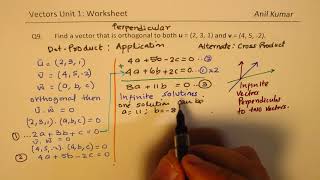 Vectors Unit 1: Worksheet
Anil Kumar
Perpendicular
Q9. Find a vector that is orthogonal to both u = (2, 3, 1) and v = (4, 5, -2).
Dot-Product: Application
Alternate: Cross Product
u = (2, 3, 1)
v = (4, 5, -2)
w = (a, b, c)
orthogonal then
(2,3,1).(a,b,c)=0
① 2a+3b+c=0
(4,5,-2).(a,b,c)=0
② 4a+5b-2c=0
4a+5b-2c=0
4a+6b+2c=0 ①×2
8a+11b =0 ③
Infinite solutions
one solution can be
a=11; b=-8
Infinite
Vectors
Perpendicular
to two vectors.